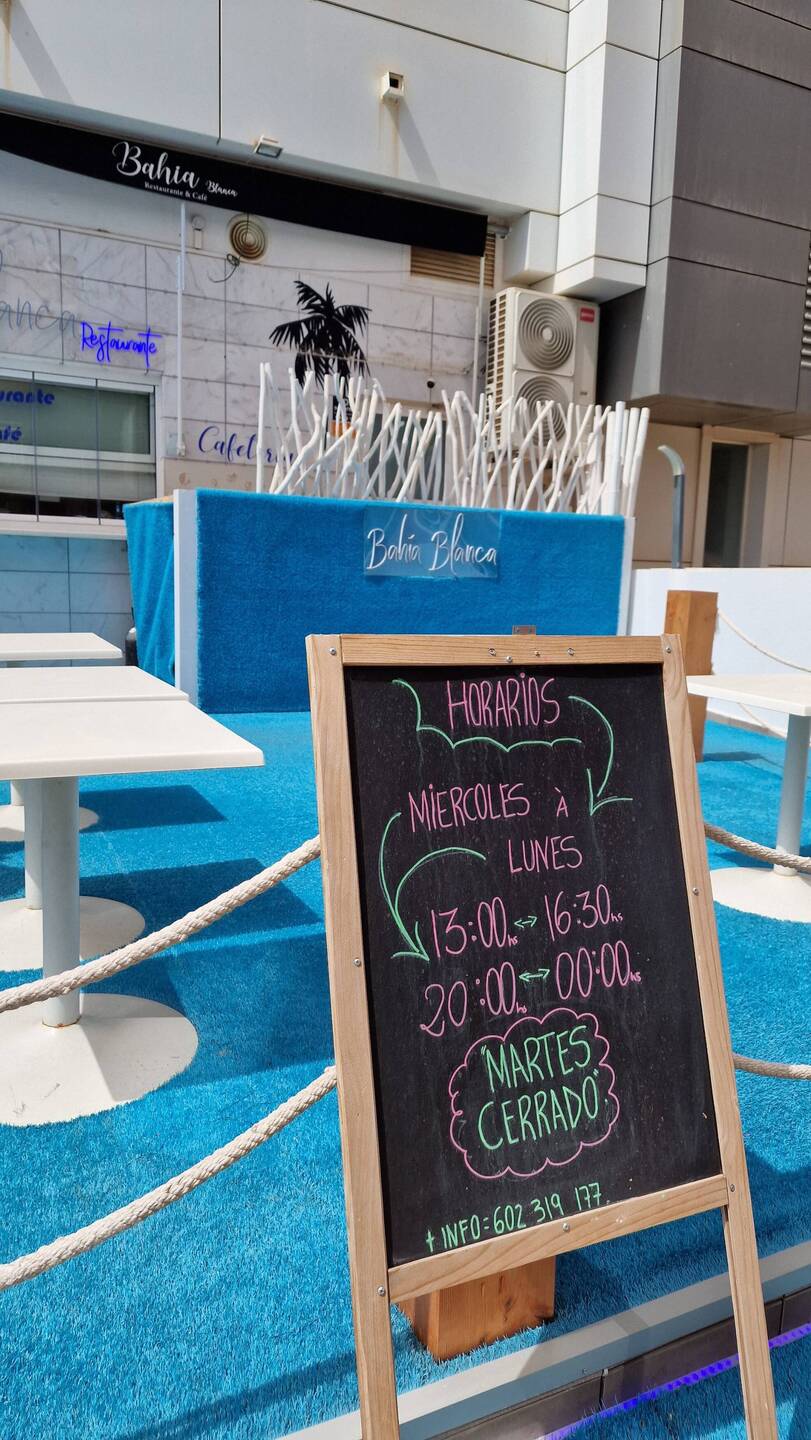 Bahía Blanca
Restaurante & Café
anca
Restaurante
urante
afé
Cafetería
Bahía Blanca
HORARIOS
MIERCOLES À
LUNES
13:00hs ↔ 16:30hs
20:00hs ↔ 00:00hs
"MARTES
CERRADO"
+ INFO=602 319 177